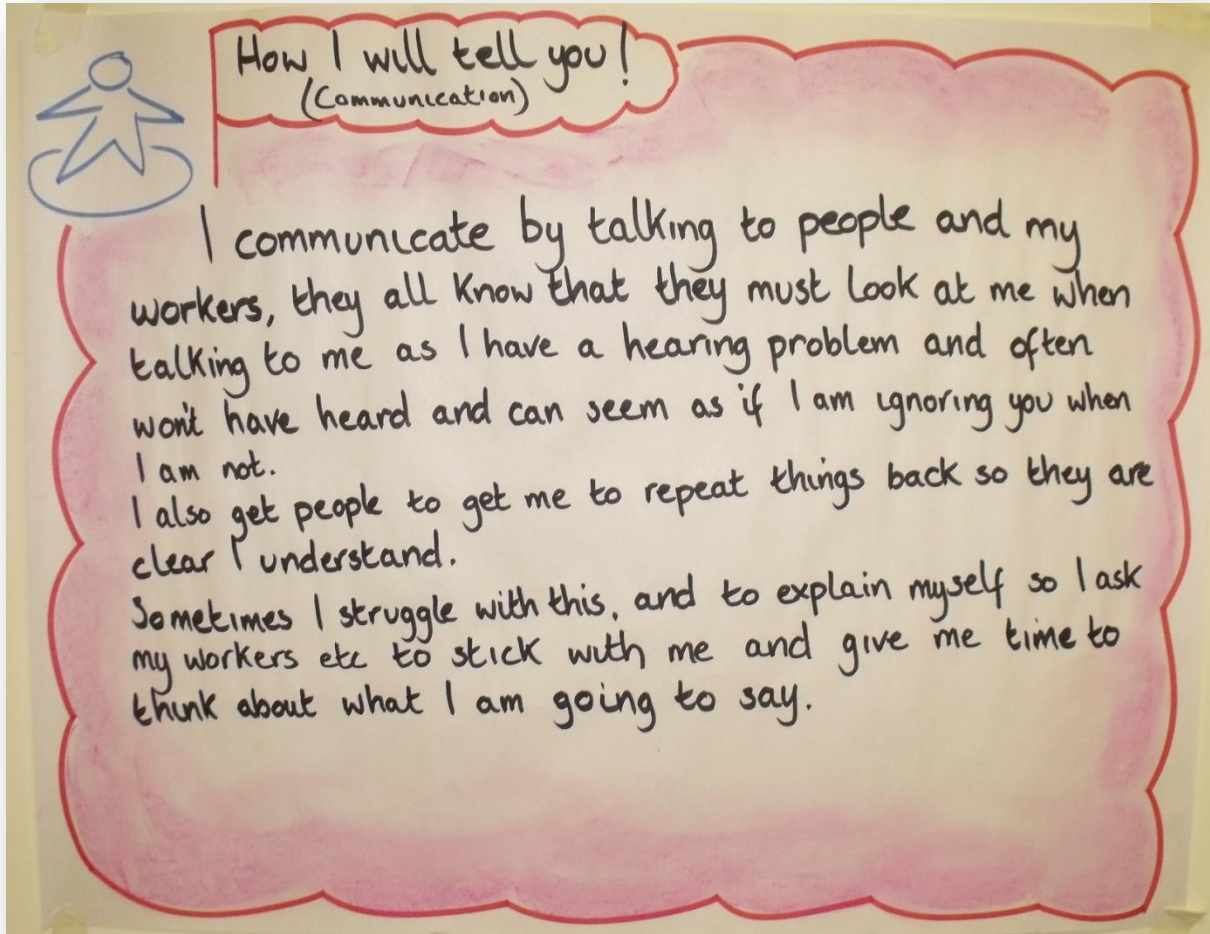 How I will tell you!
(Communication)
I communicate by talking to people and my
workers, they all know that they must look at me when
talking to me as I have a hearing problem and often
won't have heard and can seem as if I am ignoring you when
I am not.
I also get people to get me to repeat things back so they are
clear I understand.
Sometimes I struggle with this, and to explain myself so I ask
my workers etc to stick with me and give me time to
think about what I am going to say.